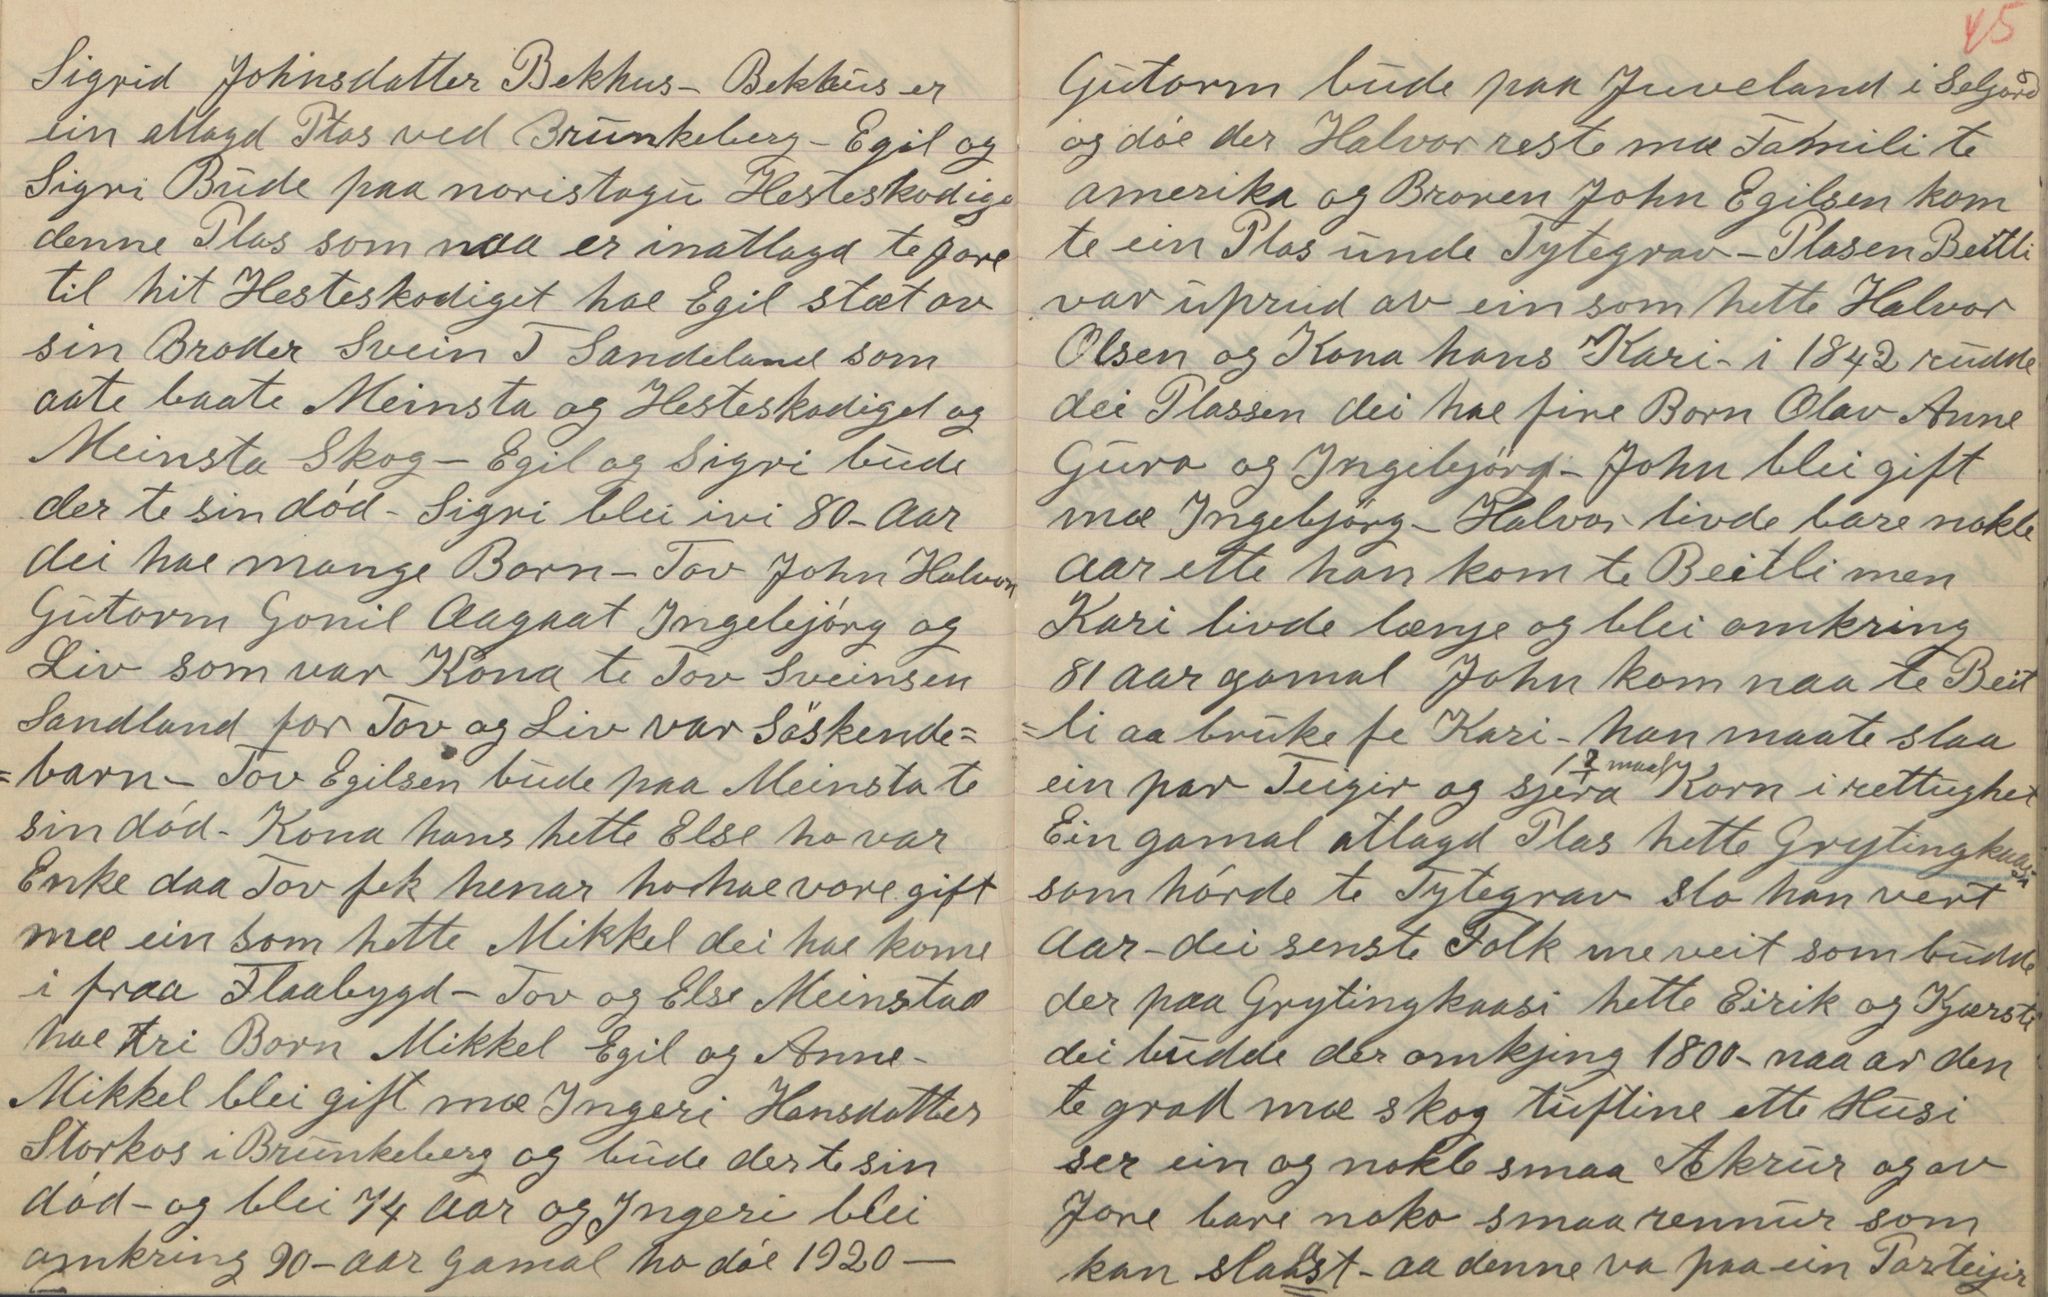 Sigrid Johnsdatter Bekhus – Bekhus er
ein atlagd Plas ved Brunkeberg – Egil og
Sigri Bude paa noristogu Hesteskodige
denne Plas som naa er inatlagd te Jore
til hit Hesteskodiget hae Egil stæt av
sin Broder Svein T Sandeland som
aate baate Meinsta og Hesteskodiget og
Meinsta Skog – Egil og Sigri bude
der te sin død – Sigri blei ivi 80 – Aar
dei hae mange Born – Tov John Halvor
Gutorm Gonil Aagaat Ingebjörg og
Liv som var Kona te Tov Sveinsen
Sandland for Tov og Liv var Söskende=
=barn – Tov Egilsen bude paa Meinsta te
sin død – Kona hans hette Else ho var
Enke daa Tov fek henar ho hae vore gift
mæ ein som hette Mikkel dei hae kome
i fraa Flaabygd – Tov og Else Meinstad
hae tri Born Mikkel Egil og Anne –
Mikkel blei gift mæ Ingeri Hansdatter
Storkos i Brunkeberg og bude der te sin
død – og blei 74 Aar og Ingeri blei
omkring 90 – aar gamal ho døe 1920 —
45
Gutorm bude paa Juveland i Seljord
og døe der Halvor reste mæ Famili te
amerika og Broren John Egilsen kom
te ein Plas unde Tytegrav – Plasen Beitli
var uprud av ein som hette Halvor
Olsen og Kona hans Kari – i 1842 rudde
dei Plassen dei hae fire Born Olav Anne
Guro og Ingebjørg – John blei gift
mæ Ingebjörg – Halvor livde bare nokle
Aar ette han kom te Beitli men
Kari livde længe og blei omkring
81 aar gamal John kom naa te Beit
=li aa bruke fe Kari – han maate slaa
ein par Teigir og sjera 1/2 maal Korn i rettughet
Ein gamal atlagd Plas hette Grytingkaasi
som hørde te Tytegrav slo han vert
Aar – dei senste Folk me veit som budde
der paa Grytingkaasi hette Eirik og Kjærsti
dei budde der omkjing 1800 – naa ar den
te grod mæ skog tuftine ette Husi
ser ein og nokle smaa Akrur og av
Jore bare noko smaa rennur som
kan slaast – aa denne va paa ein Par teigir